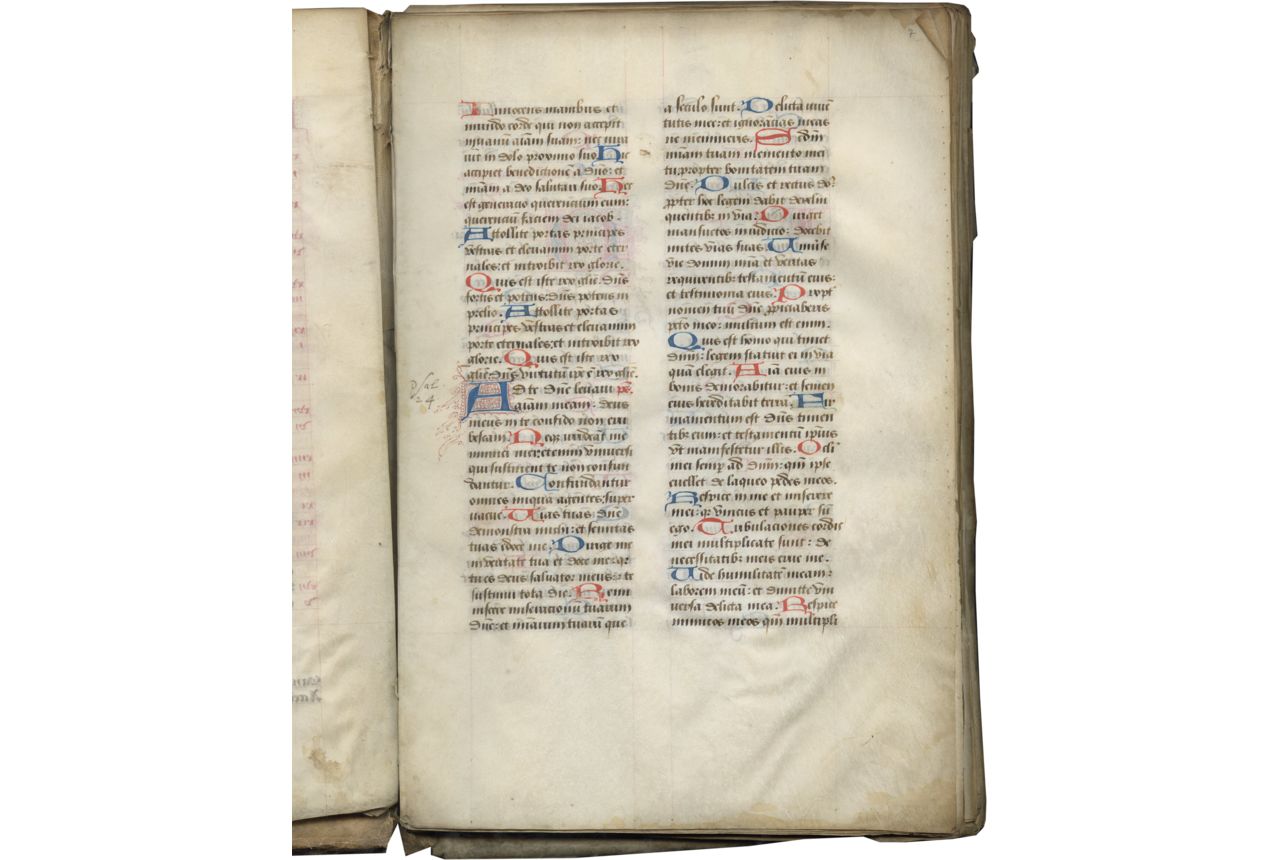 7
Innocens manibus et
mundo corde qui non accepit
in vanu aiam suam: nec iura
vit in dolo proximo suo. Hic
accipiet benedictione a dno: et
miam a deo salutari suo. Hec
est generacio querencium eum:
querenciu faciem dei iacob.
Attollite portas principes
vestras et elevamini porte eter
nales: et introibit rex glorie.
Quis est iste rex glie: dns
fortis et potens: dns potens in
prelio. Attollite portas
principes vestras et elevamini
porte eternales: et introibit rex
glorie. Quis est iste rex
glie: dns virtutu ipe e rex glie.
Psal
24
Ad te dne levavi ps.
aiam meam: deus
meus in te confido non eru
bescam. Neqz irrideat me
inimici mei: etenim universi
qui sustinent te non confun
dantur. Confundantur
omnes iniqua agentes: super
vacue. Uias tuas dne
demonstra michi: et semitas
tuas edoce me. Dirige me
in veritate tua et doce me: qr
tu es deus salvator meus: et te
sustinui tota die. Remi
niscere miseracionu tuarum
dne: et miarum tuaru que
a seculo sunt. Delicta iuve
tutis mee: et ignoracias meas
ne memineris. Scdm
miam tuam memento mei
tu: propter bonitatem tuam
dne. Dulcis et rectus dns
ppter hoc legem dabit delin
quentibz in via. Diriget
mansuetos in iudicio: docebit
mites vias suas. Univse
vie domini mia et veritas
requirentibz testamentu eius:
et testimonia eius. Propt
nomen tuu dne ppiciaberis
pcto meo: multum est enim.
Quis est homo qui timet
dnm: legem statuit ei in via
qua elegit. Aia eius in
bonis demorabitur: et semen
eius hereditabit terra. Fir
mamentum est dns timen
tibz eum: et testamentu ipsius
vt manifestetur illis. Oculi
mei semp ad dnm: qm ipse
evellet de laqueo pedes meos.
Respice in me et miserere
mei: qr unicus et pauper su
ego. Tribulaciones cordis
mei multiplicate sunt: de
necessitatibz meis erue me.
Uide humilitate meam:
laborem meu: et dimitte vni
versa delicta mea. Respice
inimicos meos qm multipli